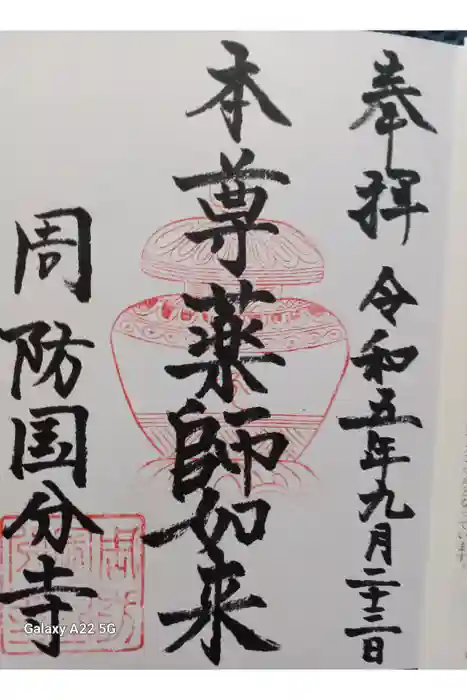 奉拝 令和五年九月二十二日
本尊薬師如来
周防国分寺
Galaxy A22 5G